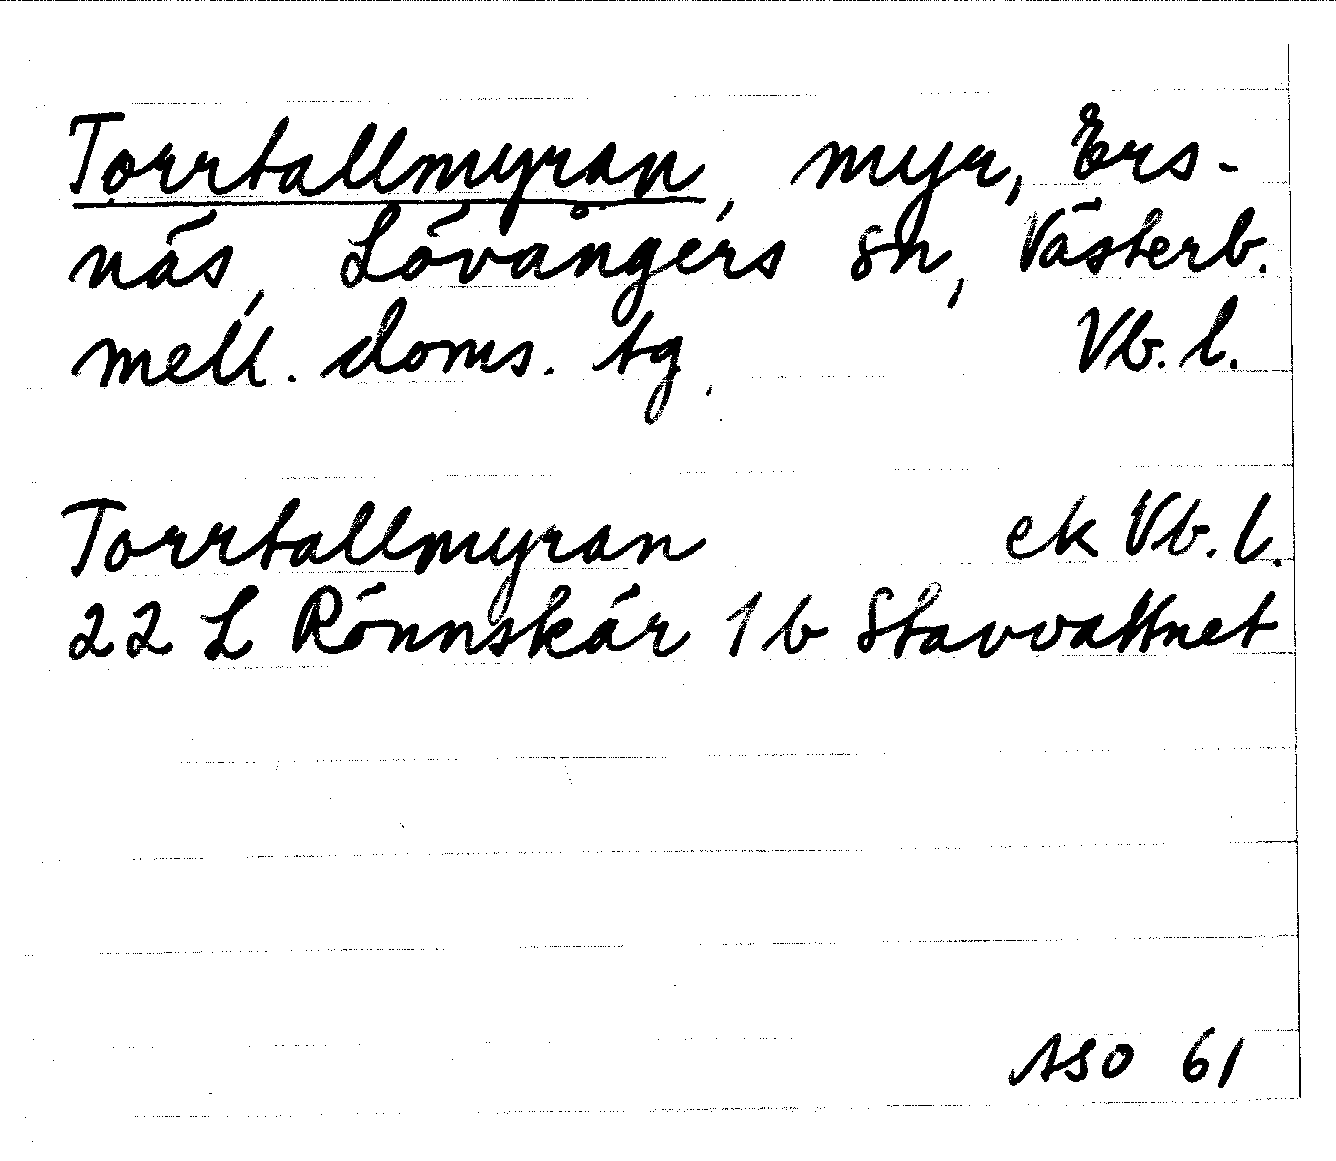 Torrtallmyran, myr, Ers-
näs, Lövångers sn, Västerb.
mell. doms. tg. Vb. l.
Torrtallmyran ek Vb. l.
22 L Rönnskär 1 b Stavvattnet
ASO 61